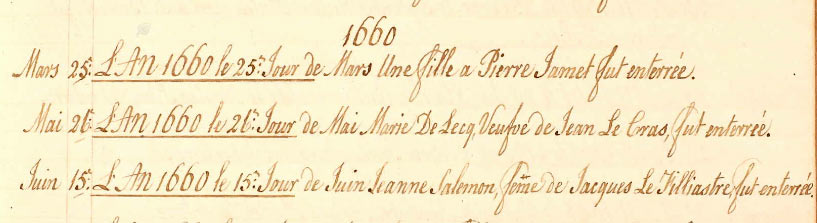 1660
Mars 25e. L'An 1660 le 25e. Jour de Mars Une fille a Pierre Jamet fut enterrée.
Mai 26e. L'An 1660 le 26e. Jour de Mai Marie De Lecq, Veufve de Jean Le Cras, fut enterrée.
Juin 15e. L'An 1660 le 15e. Jour de Juin Jeanne Salemon, feme de Jacques Le Filliastre, fut enterrée.